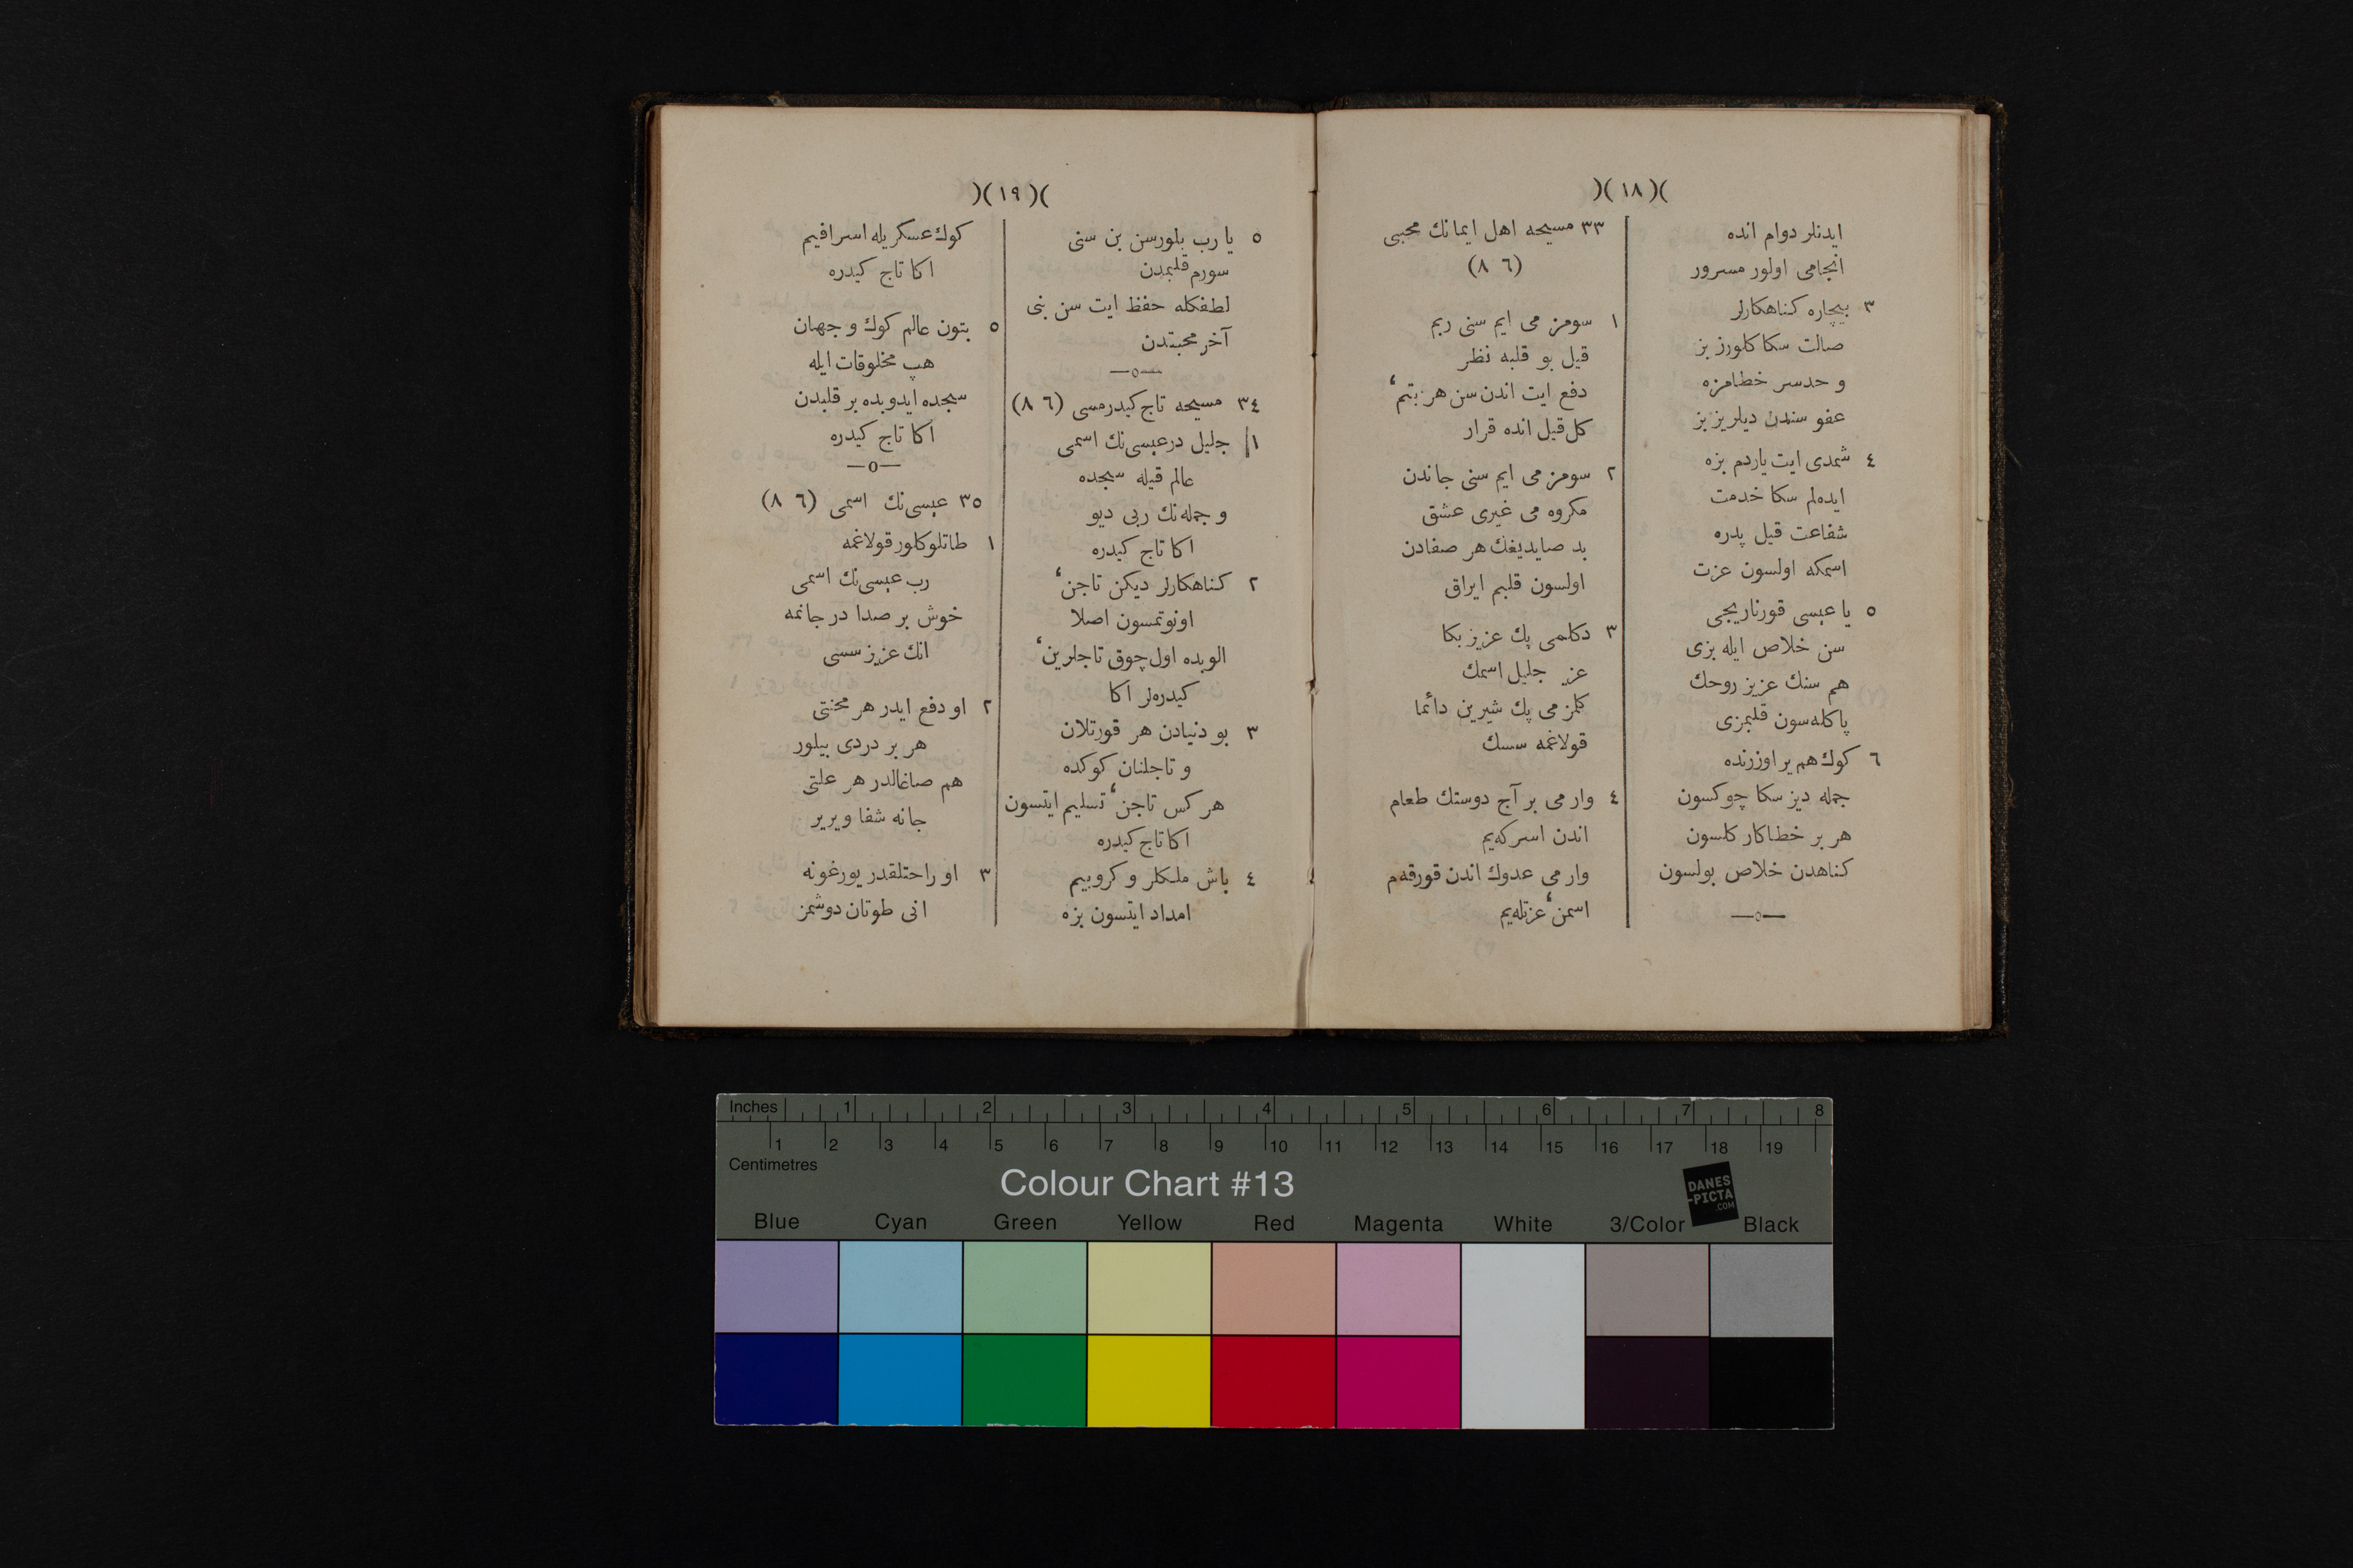 )(١٨)(
ايدنلر دوام انده
انجامى اولور مسرور
٣ بيچاره كناهكارلر
صالت سكا كلورز بز
و حدسر خطامزه
عفو سندن ديلريز بز
٤ شمدى ايت ياردم بزه
ايده‌لم سكا خدمت
شفاعت قيل پدره
اسمكه اولسون عزت
٥ يا عيسى قورتاريجى
سن خلاص ايله بزى
هم سنك عزيز روحك
پاكله‌سون قلبمزى
٦ كوك هم ير اوزرنده
جمله ديز سكا چوكسون
هر بر خطاكار كلسون
كناهدن خلاص بولسون
—٥—
٣٣ مسيحه اهل ايمانك محبى
(٨ ٦)
١ سومز مى ايم سنى ربم
قيل بو قلبه نظر
دفع ايت اندن سن هر بتم‍ٔ
كل قيل انده قرار
٢ سومز مى ايم سنى جاندن
مكروه مى غيرى عشق
بد صايديغك هر صفادن
اولسون قلبم ايراق
٣ دكلمى پك عزيز بكا
عز جليل اسمك
كلمز مى پك شيرين دائما
قولاغمه سسك
٤ وار مى بر آج دوستك طعام
اندن اسركه‌يم
وار مى عدوك اندن قورقه‌م
اسمن‍ٔ عزتله‌يم
)(١٩)(
٥ يا رب بلورسن بن سنى
سورم قلبمدن
لطفكله حفظ ايت سن بنى
آخر محبتدن
—٥—
٣٤ مسيحه تاج كيدرمسى (٨ ٦)
١ جليل در عيسى‌نك اسمى
عالم قيله سجده
و جمله‌نك ربى ديو
اكا تاج كيدره
٢ كناهكارلر ديكن تاجن‍ٔ
اونوتمسون اصلا
الوبده اول چوق تاجلرين‍ٔ
كيدره‌لر اكا
٣ بو دنيادن هر قورتلان
و تاجلنان كوكده
هر كس تاجن‍ٔ تسليم ايتسون
اكا تاج كيدره
٤ باش ملكلر و كروبيم
امداد ايتسون بزه
كوك عسكريله اسرافيم
اكا تاج كيدره
٥ بتون عالم كوك و جهان
هپ مخلوقات ايله
سجده ايدوبده بر قلبدن
اكا تاج كيدره
—٥—
٣٥ عيسى‌نك اسمى (٨ ٦)
١ طاتلو كلور قولاغمه
رب عيسى‌نك اسمى
خوش بر صدا در جانمه
انك عزيز سسى
٢ او دفع ايدر هر محنتى
هر بر دردى بيلور
هم صاغالدر هر علتى
جانه شفا ويرير
٣ او راحتلقدر يورغونه
انى طوتان دوشمز
Inches 1 2 3 4 5 6 7 8
1 2 3 4 5 6 7 8 9 10 11 12 13 14 15 16 17 18 19
Centimetres
Colour Chart #13
DANES
-PICTA
.COM
Blue Cyan Green Yellow Red Magenta White 3/Color Black